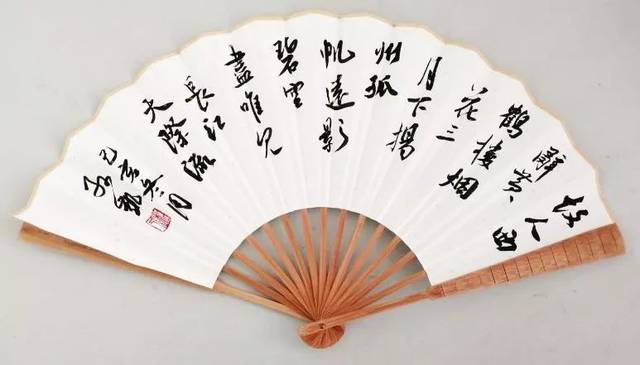 故人西
辭黄
鶴樓烟
花三
月下揚
州孤
帆遠影
碧空
盡唯見
長江
天際流
己亥
月